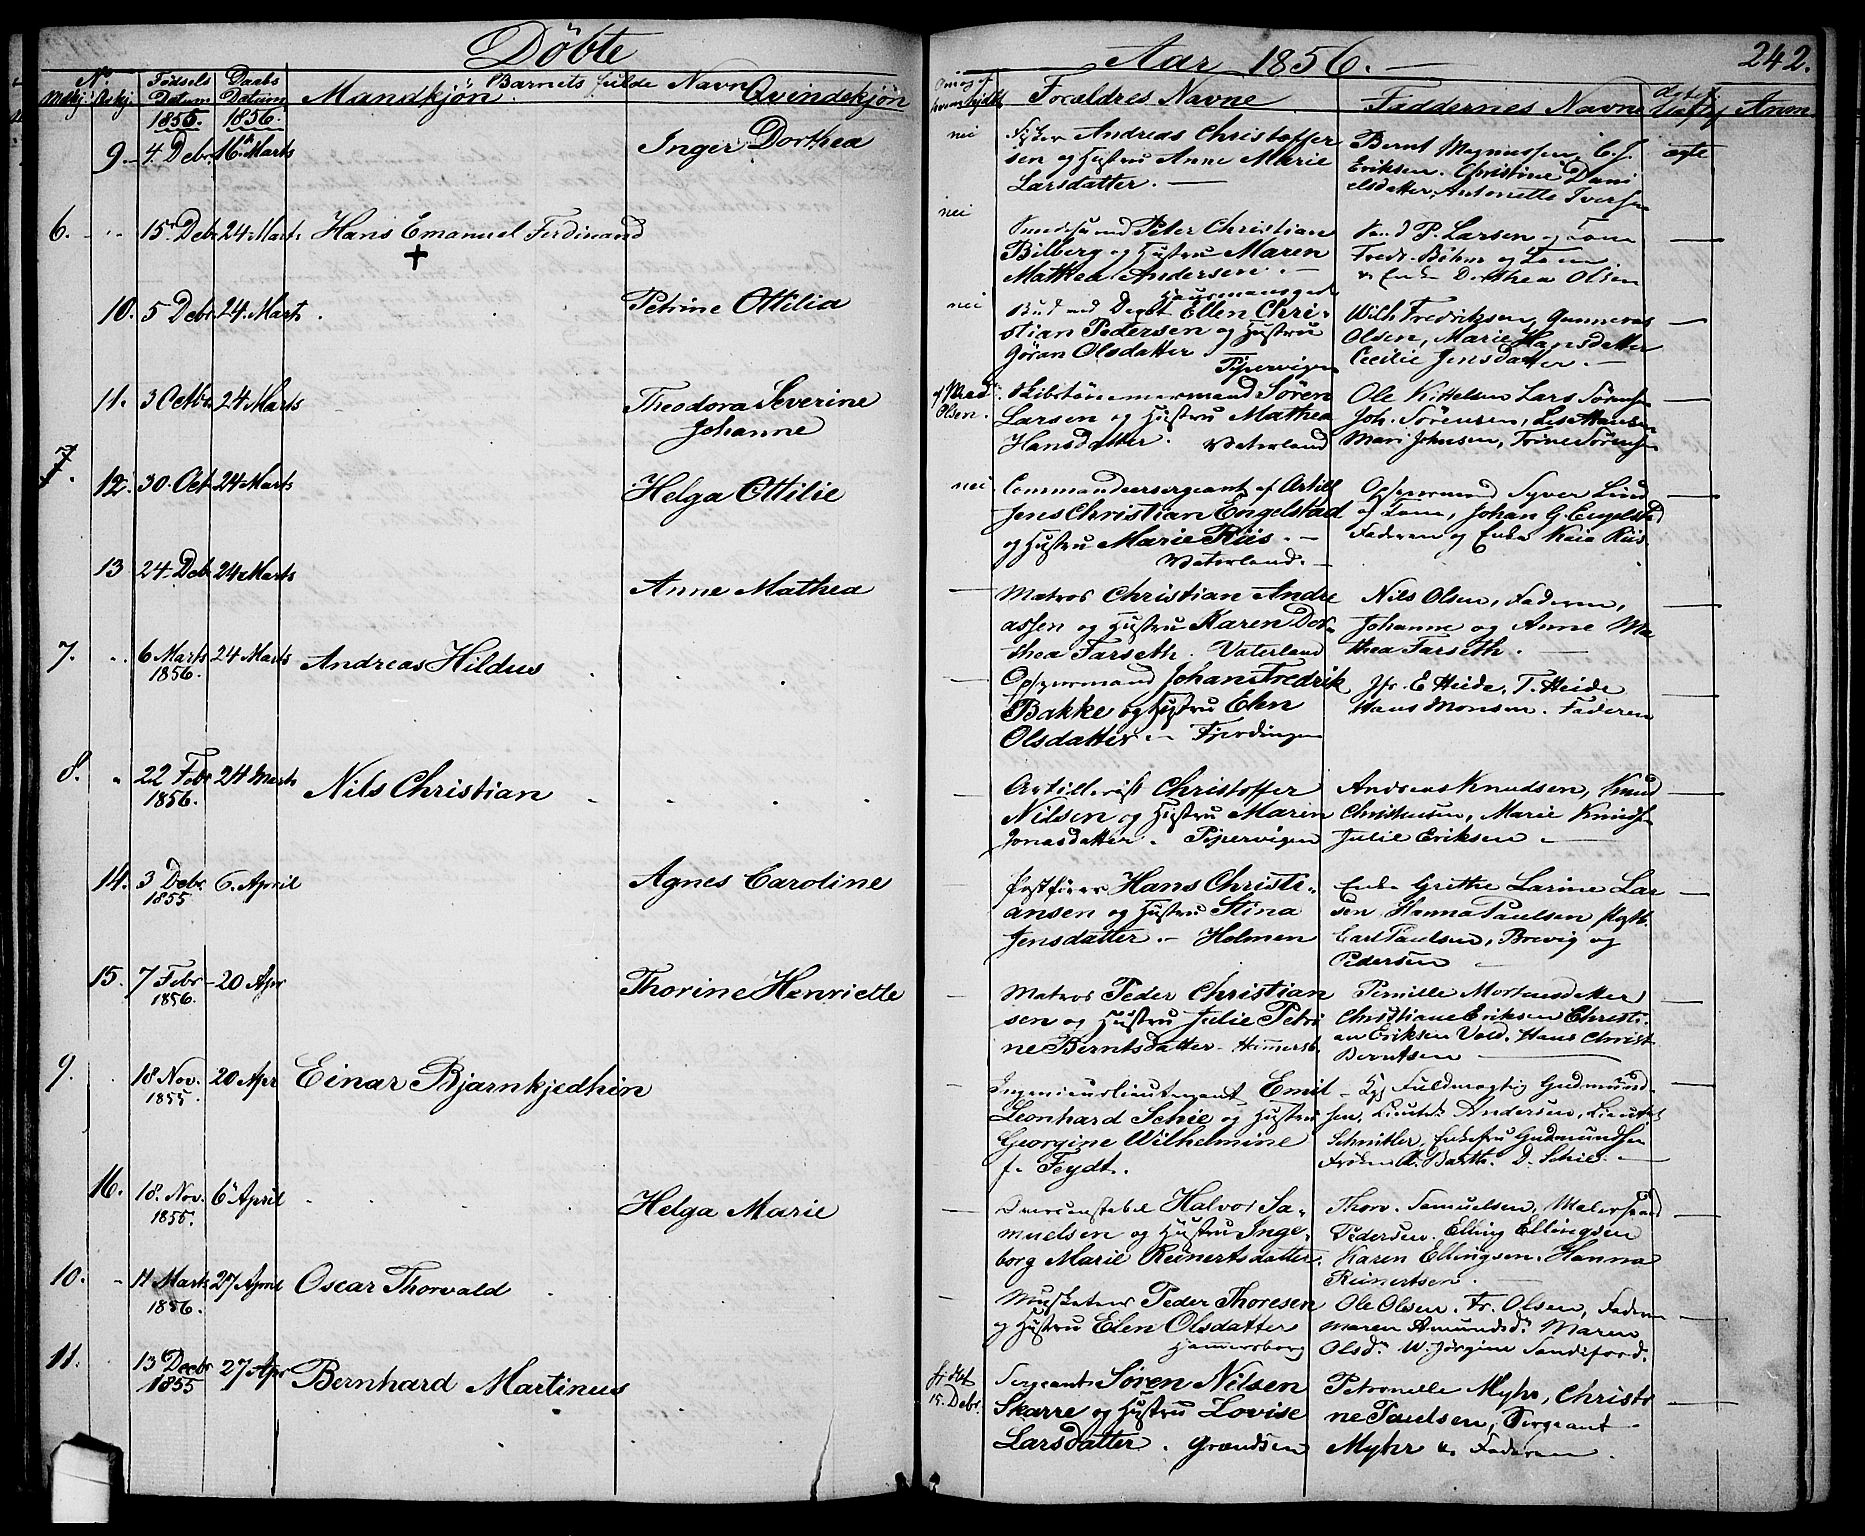 Döbte
Aar 1856.
242.
No
Mdkj. Qvkj.
Födsels Datum
Daabs Datum
Barnets fulde Navn
Mandkjön.
Qvindekjön
Forældres Navne
Faddernes Navne
Anm
1855. 1856.
9. 4 Debr 16 Marts Inger Dorthea
nei
Andreas Christoffer
sen og Hustru Anne Marie
Larsdatter.
Bernt Magnussen, C. J.
Eriksen. Christine Dani
elsdatter, Antonette Iversen
ægte
6. 15 Debr 24 Marts Hans Emanuel Ferdinand
+
nei
Peter Christian
Bilberg og Hustru Maren
Mathea Andersen.
P. Larsen og Kone
Fredr. Böhm og Kone
Enke Dorthea Olsen
10. 5 Debr 24 Marts Petrine Ottilia
nei
Hausmansgade
Bud ved Depot Ellen Chri-
stian Pedersen og Hustru
Göran Olsdatter
Pipervigen
Wilh Fredriksen, Gunneras
Olsen, Marie Hansdatter
Cecilie Jensdatter.
11. 3 Octbr 24 Marts Theodora Severine
Johanne
Olsen.
Skibstömmermand Sören
Larsen og Hustru Mathea
Hansdatter. Vaterland
Ole Kittelsen Lars Sörensen
Joh. Sörensen, Lise Hansen
Mari Johnsen, Trine Sörensen
7.
12. 30. Oct 24 Marts Helga Ottilie
nei
Commandeersergeant af Artill
Jens Christian Engelstad
og Hustru Marie Riis.
Vaterland.
Opsynsmand Syver Lund
og Kone, Johan G. Engelstad
Faderen og Enke Kaia Riis.
13 24 Deb 24 Marts Anne Mathea
Matros Christian Andre
assen og Hustru Karen Dor-
thea Farseth. Vaterland
Nils Olsen, Faderen,
Johanne og Anne Ma
thea Farseth.
7. 6 Marts 24 Marts Andreas Hildus
1856.
Opsynsmand Johan Fredrik
Bakke og Hustru Elen
Olsdatter Fjerdingen
Jfr. E Heide, T. Heide
Hans Monsen. Faderen
8. 22 Febr 24 Marts Nils Christian
1856.
Artillerist Christoffer
Nilsen og Hustru Maren
Jonasdatter. Pipervigen
Andreas Knudsen, Knud
Christensen, Marie Knudsen
Julie Eriksen
14. 3 Debr 6. April Agnes Caroline
1855
Hans Christi-
ansen og Hustru Stina
Jensdatter. Holmen
Enke Grethe Larine Lar
sen Hanna Paulsen
Carl Paulsen, Brevig og
Pedersen
15. 7 Febr 20 Apr Thorine Henriette
1856.
Matros Peder Christian
sen og Hustru Julie Petri
ne Berntsdatter
Pernille Mortensdatter
Christiane Eriksen Christi-
an Eriksen Vold. Hans Christ
Berntsen
9. 18 Nov. 20 Apr Einar Bjarnkjedhin
1855.
Ingenieurlieutenant Emil
Leonhard Schie og Hustru
Georgine Wilhelmine
f. Feydt.
Fuldmægtig Gudmund-
sen, Lieutn Andersen, Lieutnt
Schnitler, Enkefru Gudmundsen
Fröken A. Barth. D. Schie.
16. 18. Nov. 6 April Helga Marie
1855.
Halvor Sa-
muelsen og Hustru Inge-
borg Marie Reinertsdatter.
Thorv. Samuelsen, Malersvend
Pedersen. Elling Ellingsen
Karen Ellingsen. Hanna
Reinertsen.
10. 11 Marts 27 April Oscar Thorvald
1856.
Musketeer Peder Thoresen
og Hustru Elen Olsdatter
Hammersborg
Ole Olsen. Fr. Olsen, Faderen
Maren Amundsd. Maren
Olsd. W. Jörgine Sandsford.
11. 13 Decbr 27 Apr Bernhard Martinus
1855
15. Debr.
Sergeant Sören Nilsen
Skarre og Hustru Lovise
Larsdatter. Grændsen
Petronelle Myhr, Christi
ne Paulsen, Sergeant
Myhr & Faderen